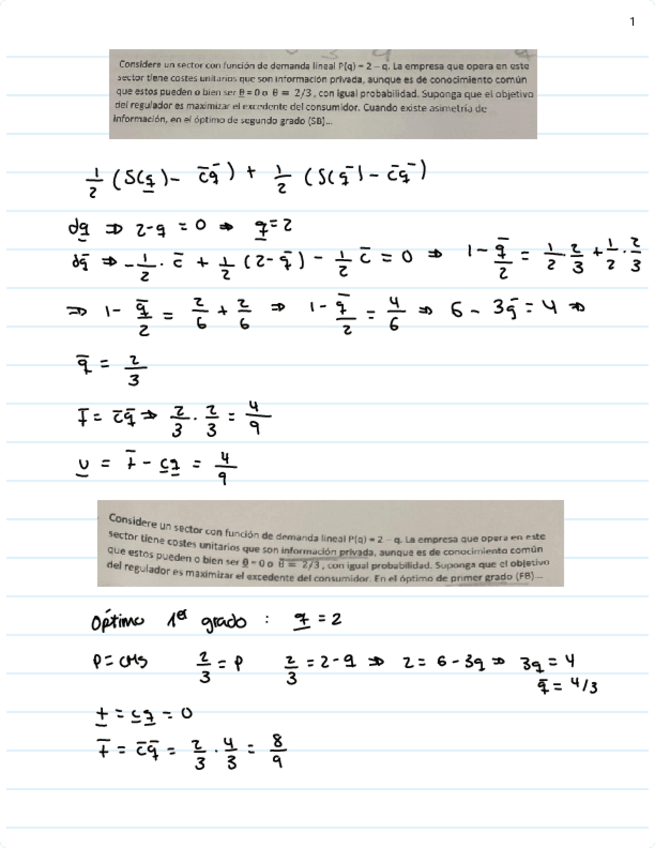 1
Considere un sector con función de demanda lineal P(q) = 2 – q. La empresa que opera en este
sector tiene costes unitarios que son información privada, aunque es de conocimiento común
que estos pueden o bien ser θ̲ = 0 o θ̄ = 2/3, con igual probabilidad. Suponga que el objetivo
del regulador es maximizar el excedente del consumidor. Cuando existe asimetría de
información, en el óptimo de segundo grado (SB)...
1/2 (S(q̲) - c̄q̄) + 1/2 (S(q̄) - c̄q̄)
dq̲ ⇒ 2-q = 0 ⇒ q̲ = 2
dq̄ ⇒ -1/2 · c̄ + 1/2 (2-q̄) - 1/2 c̄ = 0 ⇒ 1 - q̄/2 = 1/2 · 2/3 + 1/2 · 2/3
⇒ 1 - q̄/2 = 2/6 + 2/6 ⇒ 1 - q̄/2 = 4/6 ⇒ 6 - 3q̄ = 4 ⇒
q̄ = 2/3
T̄ = c̄q̄ ⇒ 2/3 · 2/3 = 4/9
u̲ = t̄ - c̲q̲ = 4/9
Considere un sector con función de demanda lineal P(q) = 2 – q. La empresa que opera en este
sector tiene costes unitarios que son información privada, aunque es de conocimiento común
que estos pueden o bien ser θ̲ = 0 o θ̄ = 2/3, con igual probabilidad. Suponga que el objetivo
del regulador es maximizar el excedente del consumidor. En el óptimo de primer grado (FB)...
Óptimo 1er grado : q̲ = 2
P = CMg 2/3 = P 2/3 = 2-q ⇒ 2 = 6-3q ⇒ 3q = 4
q̄ = 4/3
t̲ = c̲q̲ = 0
t̄ = c̄q̄ = 2/3 · 4/3 = 8/9